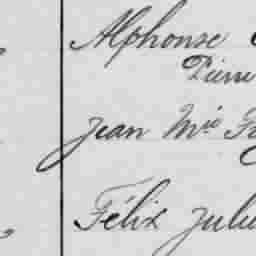 Alphonse
Pierre
Jean Mie
Félix Jules